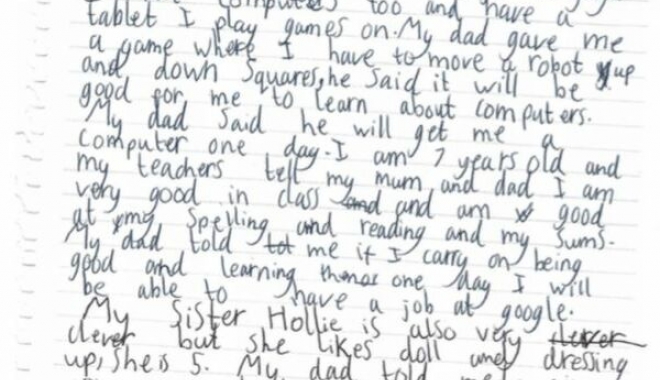 computers too and have a
tablet I play games on. My dad gave me
a game where I have to move a robot up
and down squares, he said it will be
good for me to learn about computers.
My dad said he will get me a
computer one day. I am 7 years old and
my teachers tell my mum and dad I am
very good in class and and am good
at my spelling and reading and my sums.
My dad told tot me if I carry on being
good and learning one day I will
be able to have a job at google.
My Sister Hollie is also very clever
clever but she likes doll and dressing
up, she is 5. My dad told me